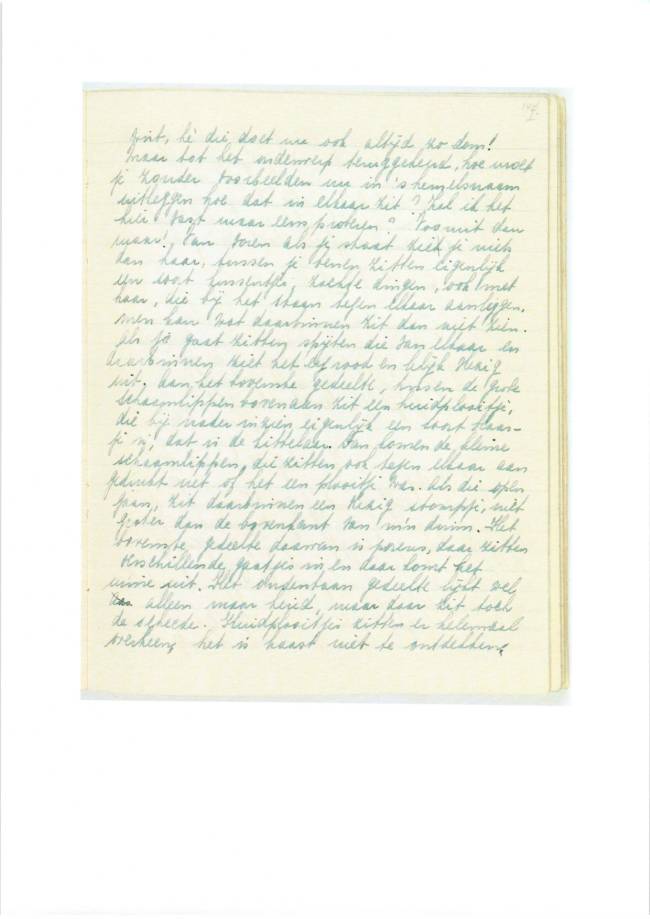 Grit, hè die doet me ook altijd zo dom!
Maar tot het onderwerp teruggekeerd, hoe moet
je zonder voorbeelden nu in 's hemelsnaam
uitleggen hoe dat in elkaar zit? Zal ik het
hier vast maar eens proberen? Vooruit dan
maar! Van voren als je staat zie je niets
dan haar, tussen je benen zitten eigenlijk
een soort kussentjes, zachte dingen, ook met
haar, die bij het staan tegen elkaar aanliggen.
men kan wat daarbinnen zit dan niet zien.
Als je gaat zitten splijten die van elkaar en
daarbinnen ziet het erg rood en lelijk vlezig
uit. Aan het bovenste gedeelte, tussen de grote
schaamlippen bovenaan zit een huidplooitje,
die bij nader inzien eigenlijk een soort blaas-
je is, dat is de kittelaar. Dan komen de kleine
schaamlippen, die zitten ook tegen elkaar aan
gedrukt net of het een plooitje was. Als die open
gaan, zit daarbinnen een vlezig stompje, niet
groter dan de bovenkant van m'n duim. Het
bovenste gedeelte daarvan is poreus, daar zitten
verschillende gaatjes in en daar komt het
urine uit. Het onderste gedeelte lijkt wel
alleen maar heid, maar daar zit toch
de schede. Huidplooitjes zitten er helemaal
overheen, het is haast niet te ontdekken,